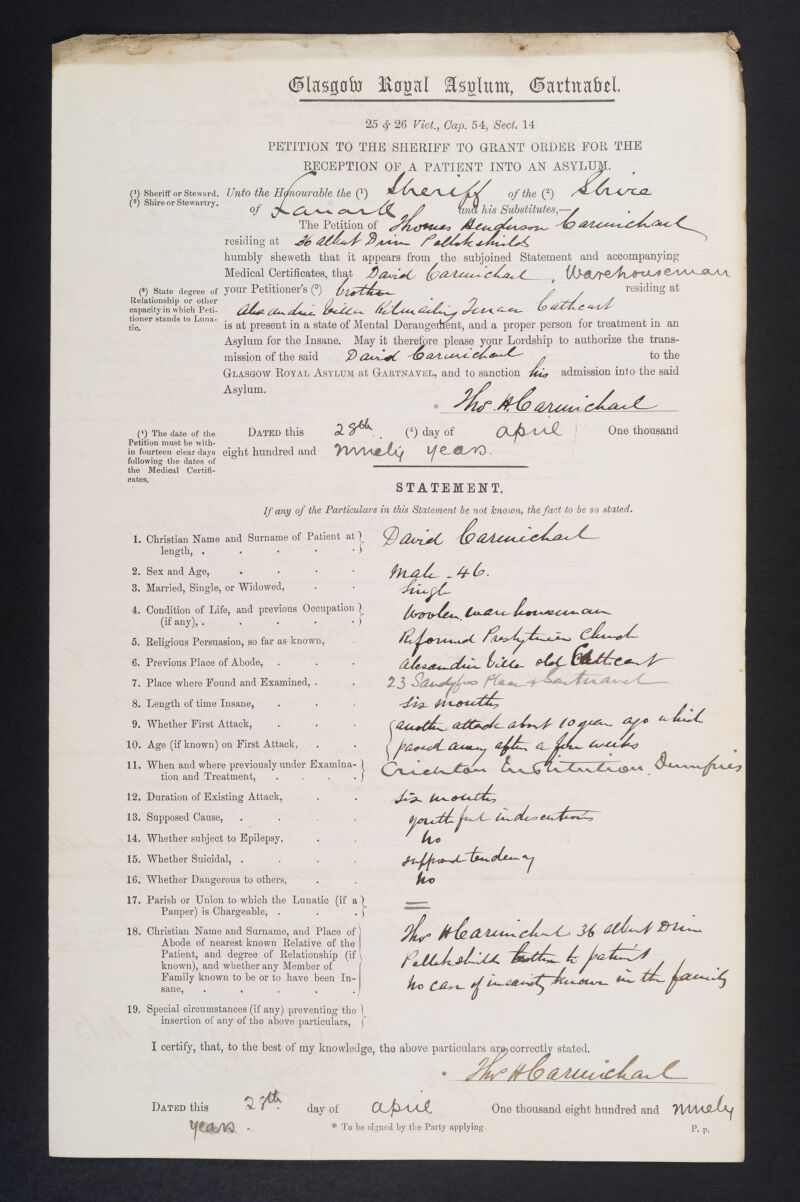 Glasgow Royal Asylum, Gartnabel.
25 & 26 Vict., Cap. 54, Sect. 14
PETITION TO THE SHERIFF TO GRANT ORDER FOR THE
RECEPTION OF A PATIENT INTO AN ASYLUM.
(¹) Sheriff or Steward.
(²) Shire or Stewartry.
Unto the Honourable the (¹) Sheriff of the (²) Shire
of Lanark and his Substitutes,—
The Petition of Thomas Henderson Carmichael
residing at 36 Albert Drive Pollokshields
humbly sheweth that it appears from the subjoined Statement and accompanying
Medical Certificates, that David Carmichael, Warehouseman
(³) State degree of Relationship or other capacity in which Petitioner stands to Lunatic.
your Petitioner's (³) brother residing at
Alexandria Villa Kilmailing Terrace Cathcart
is at present in a state of Mental Derangement, and a proper person for treatment in an
Asylum for the Insane. May it therefore please your Lordship to authorize the trans-
mission of the said David Carmichael to the
GLASGOW ROYAL ASYLUM at GARTNAVEL, and to sanction his admission into the said
Asylum.
Thos. H. Carmichael
(⁴) The date of the Petition must be within fourteen clear days following the dates of the Medical Certificates,
DATED this 28th (⁴) day of April One thousand
eight hundred and ninety years.
STATEMENT.
If any of the Particulars in this Statement be not known, the fact to be so stated.
1. Christian Name and Surname of Patient at length, . David Carmichael
2. Sex and Age, Male - 46.
3. Married, Single, or Widowed, Single
4. Condition of Life, and previous Occupation (if any), . Woolen warehouseman
5. Religious Persuasion, so far as known, Reformed Presbyterian Church
6. Previous Place of Abode, Alexandria Villa old Cathcart
7. Place where Found and Examined, . 23 Sandyfos Place & Gartnavel
8. Length of time Insane, six months
9. Whether First Attack, another attack about 10 years ago which
10. Age (if known) on First Attack, passed away after a few weeks
11. When and where previously under Examination and Treatment, Crichton Institution Dumfries
12. Duration of Existing Attack, six months
13. Supposed Cause, youthful indiscretions
14. Whether subject to Epilepsy, no
15. Whether Suicidal, . supposed tendency
16. Whether Dangerous to others, No
17. Parish or Union to which the Lunatic (if a Pauper) is Chargeable, =
18. Christian Name and Surname, and Place of Abode of nearest known Relative of the Patient, and degree of Relationship (if known), and whether any Member of Family known to be or to have been Insane,
Thos H Carmichael 36 Albert Drive
Pollokshields brother to patient
No case of insanity known in the family
19. Special circumstances (if any) preventing the insertion of any of the above particulars,
I certify, that, to the best of my knowledge, the above particulars are correctly stated.
Thos H Carmichael
DATED this 28th day of April One thousand eight hundred and ninety
years.
* To be signed by the Party applying.
P. p.